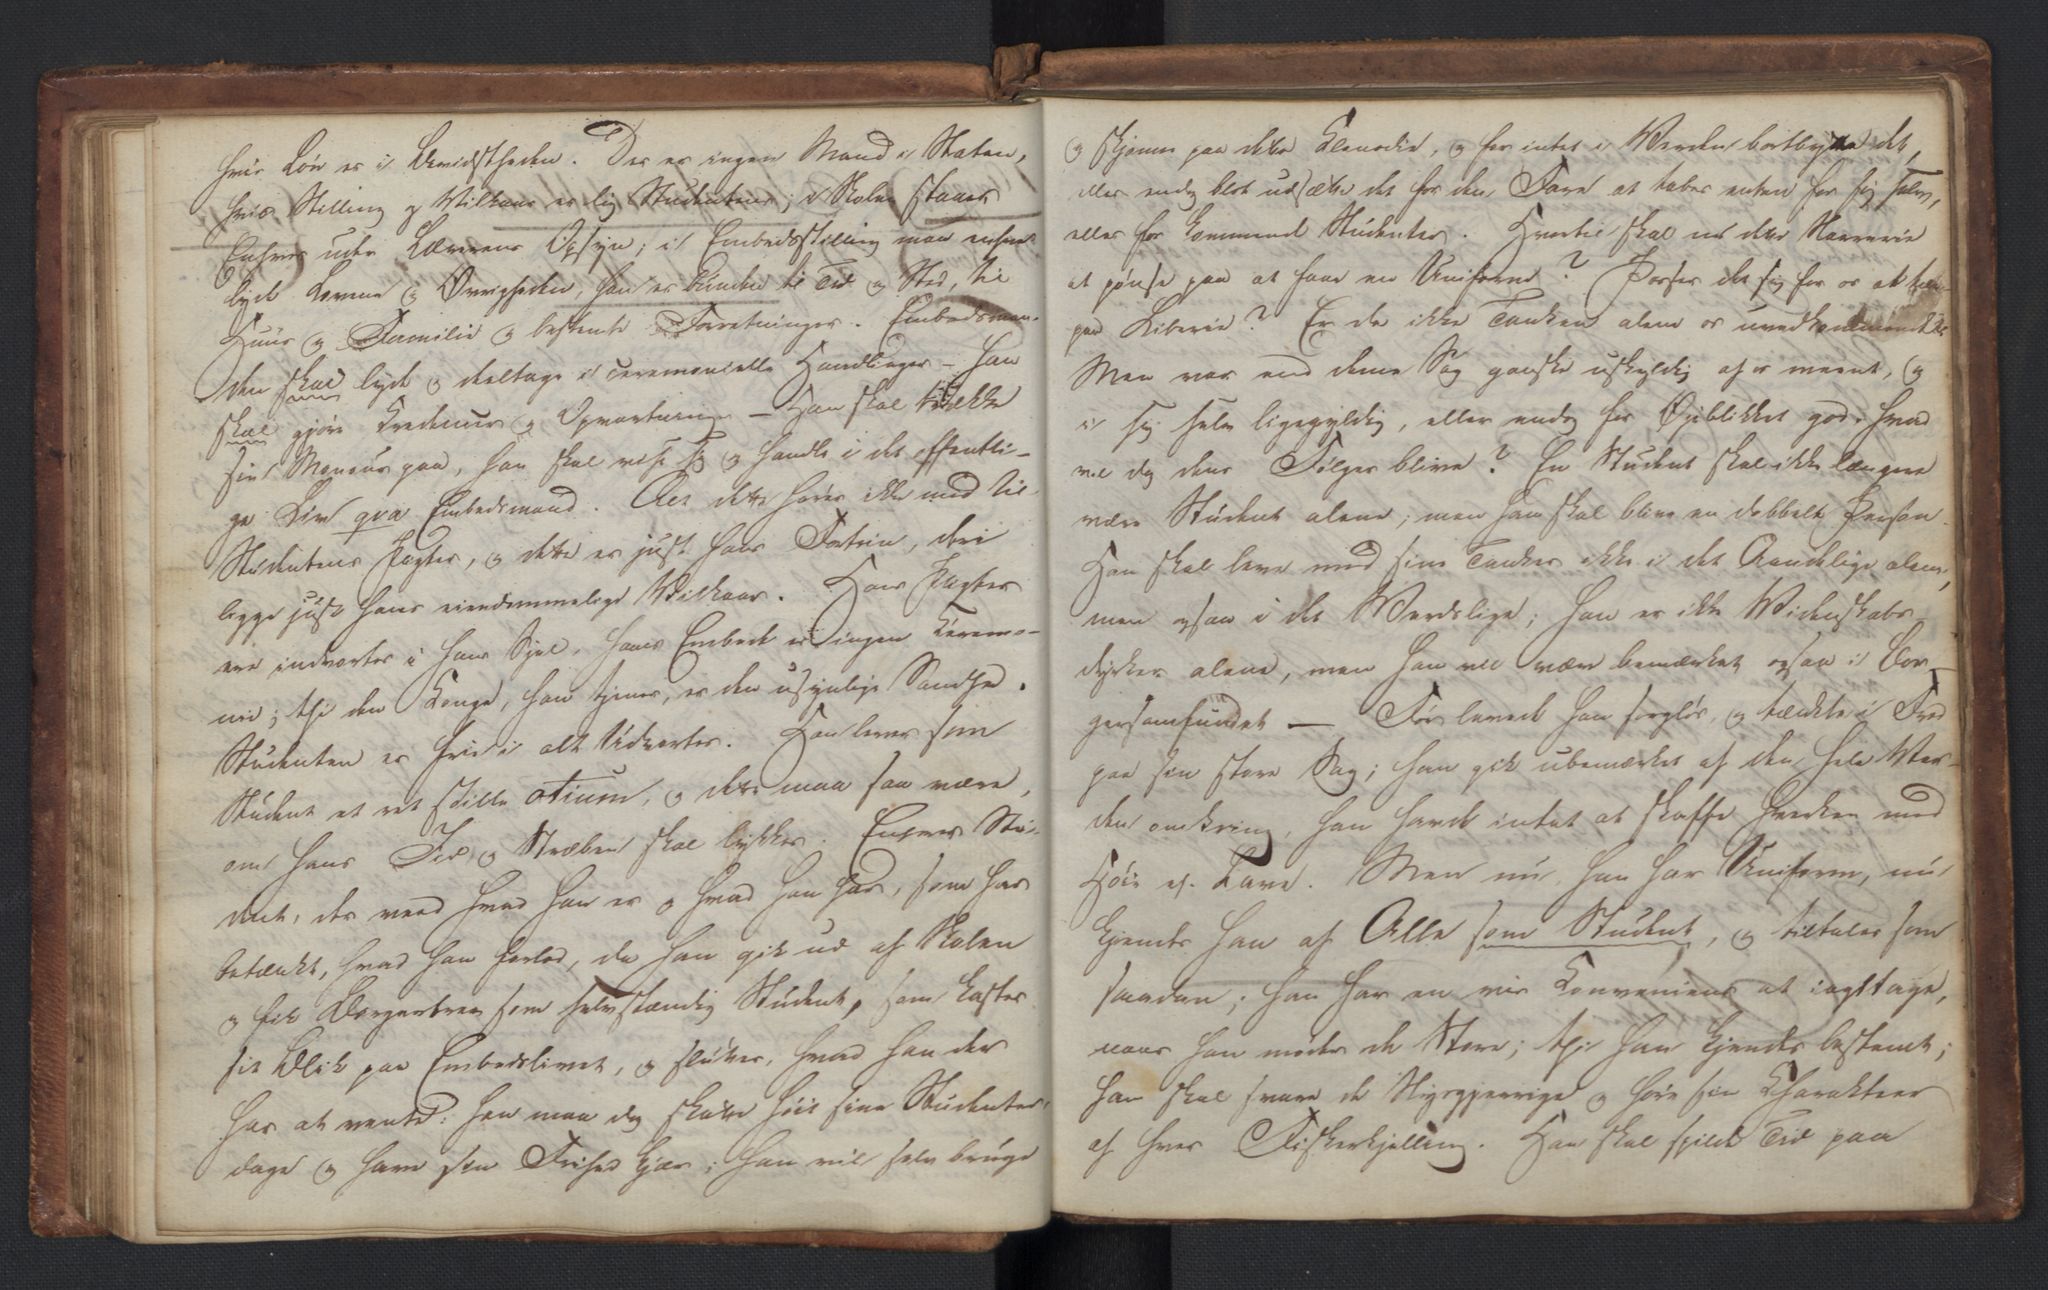 hvis Løn er i Bevidstheden. Der er ingen Mand i Staten,
hvis Stilling og Vilkaar er lig Studentens; i Skolen staaer
Enhver under Lærerens Opsyn; i Embedsstilling maa enhver
lyde Lovene og Øvrigheden, han er bunden til Tid og Sted, til
Huus og Familie og bestemte Forretninger. Embedsman-
den skal lyde og deeltage i ceremonielle Handlinger – han
skal gjøre Credeneur og Opvartning – Han skal trække
sin Monour paa, han skal vise sig og handle i det offentli-
ge Liv qva Embedsmand. Alt dette hører ikke med til
Studentens Pligter, og dette er just hans Fortrin, deri
ligge just hans eiendommelige Vilkaar. Hans Pligter
ere indvortes i hans Sjel, hans Embede er ingen Ceremo-
nie; thi den Konge, han tjener, er den usynlige Sandhed.
Studenten er frie i alt Udvortes. Han lever som
Student et ret stille otium, og dette maa saa være,
om hans Id og Stræben skal lykkes. Enhver Stu-
dent, der veed hvad han er og hvad han har, som har
betænkt, hvad han forlod, da han gik ud af Skolen
og fik Borgerbrev som selvstændig Student, som kaster
sit Blik paa Embedslivet, og slutter, hvad han der
har at vente: han maa dog skatte høit sine Studenter-
dage og have sin Frihed kjær; han vil selv bruge
og skjønne paa dette Klenodie, og for intet i Verden bortbytte det,
eller endog blot udsætte det for den Fare at tabes enten for sig selv,
eller for kommende Studenter. Hvortil skal nu det Narrerie
at pønse paa at faae en Uniform? Passer det sig for os at tænke
paa Liberie? Er da ikke Tanken alene os uvedkommende
Men var end denne Sag ganske uskyldig af os meent, og
i sig selv ligegyldig, eller endog for Øjeblikket god: hvad
vil dog dens Følger blive? En Student skal ikke længere
være Student alene; men han skal blive en dobbelt Person.
Han skal leve med sine Tanker ikke i det Aandelige alene,
men ogsaa i det Verdslige; han er ikke Videnskabs-
dyrker alene, men han vil være bemærket ogsaa i Bor-
gersamfundet – Før levede han sorgløs, og tænkte i Fred
paa sin store Sag; han gik ubemærket af den hele Ver-
den omkring, han havde intet at skaffe hverken med
Høie ej. Lave. Men nu, han har Uniform, nu
kjendes han af Alle som Student, og tiltales som
saadan; han har en vis Konveniens at iagttage,
naar han møder de Store; thi han kjendes bestemt;
han skal svare de Nysgjerrige og høre sin Charakteer
af hver Fiskerkjelling. Han skal spilde Tid paa